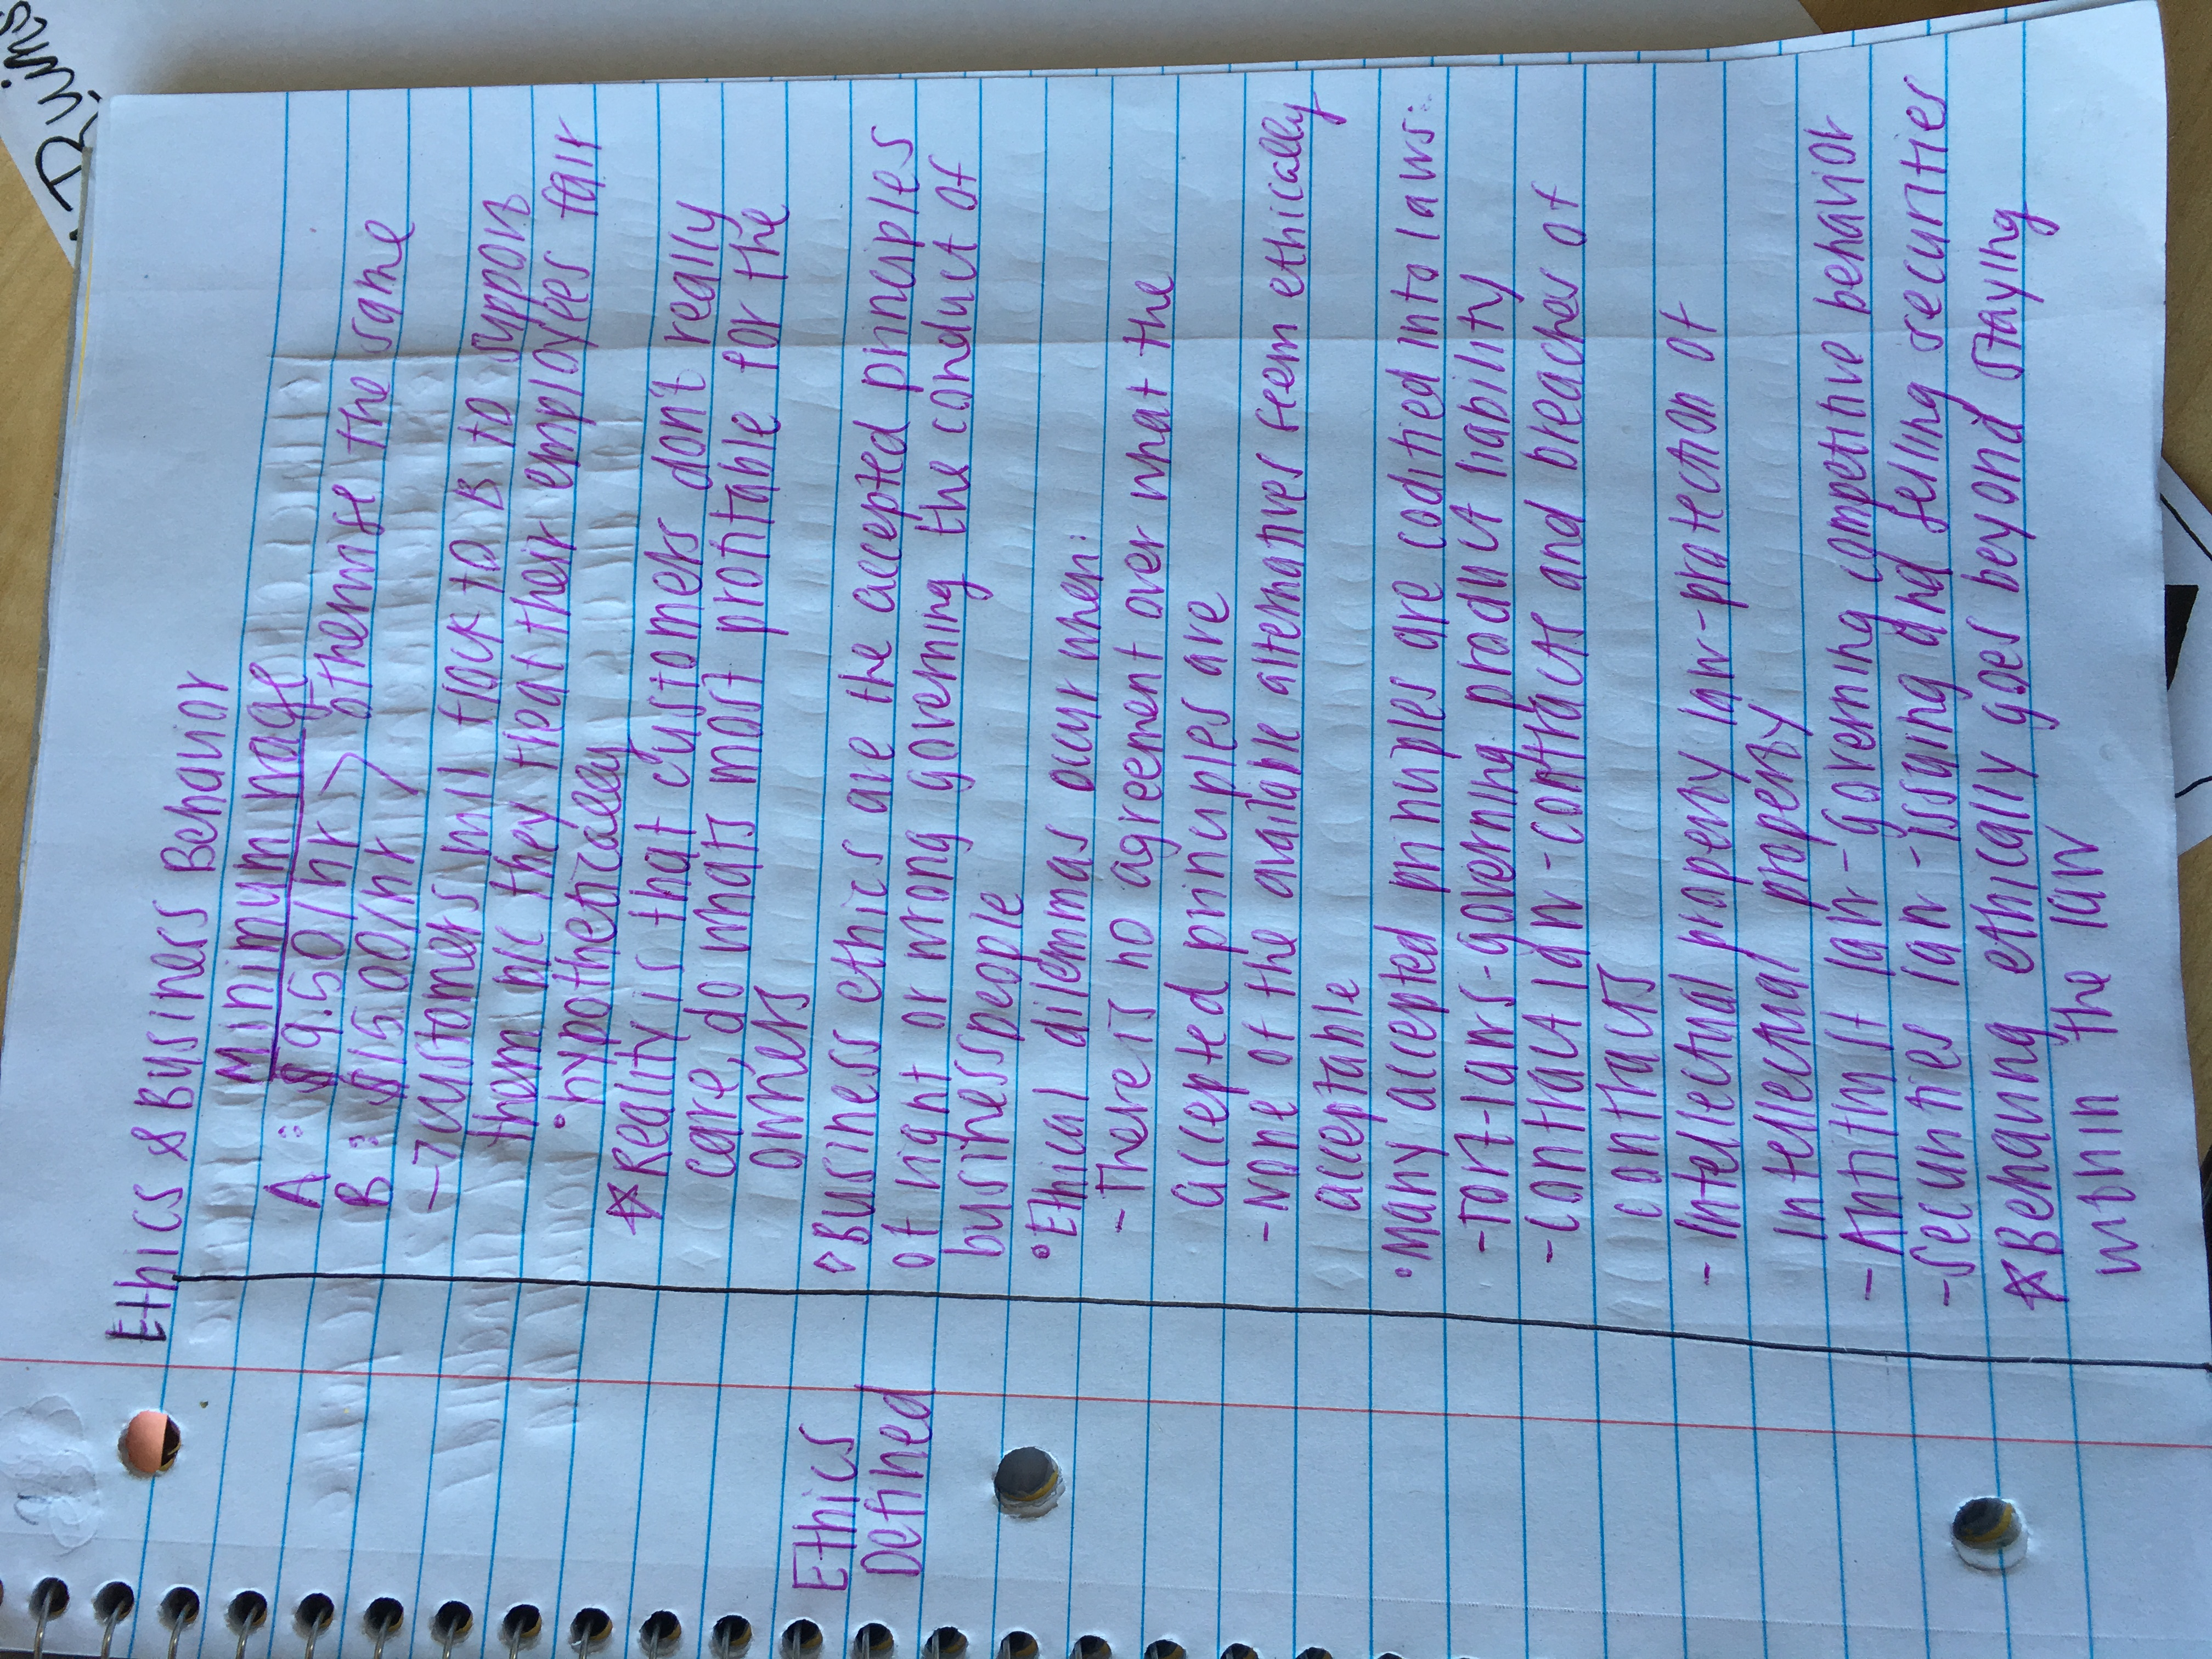 Ruins
Ethics & Business Behavior
Minimum Wage
A: $9.50/hr > otherwise the same
B: $15.00/hr
→ customers will flock to B to support
them b/c they treat their employees fair
• hypothetically
☆ Reality is that customers don't really
care, do whats most profitable for the
owners
Ethics
Defined
◊ Business ethics are the accepted principles
of right or wrong governing the conduct of
businesspeople
• Ethical dilemmas occur when:
- There is no agreement over what the
accepted principles are
- None of the available alternatives seem ethically
acceptable
• Many accepted principles are codified into laws:
- Tort-laws-governing product liability
- Contract law-contracts and breaches of
contracts
- Intellectual property law-protection of
intellectual property
- Antitrust law- governing competitive behavior
- Securities law-issuing and selling securities
☆ Behaving ethically goes beyond staying
within the law